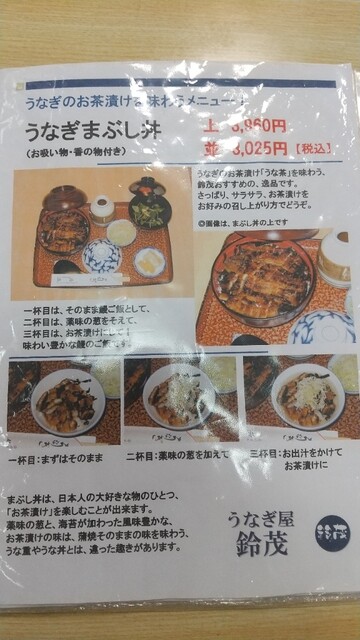 うなぎのお茶漬けを味わうメニュー！
うなぎまぶし丼
(お吸い物・香の物付き)
上 3,960円
並 3,025円【税込】
うなぎのお茶漬け「うな茶」を味わう、
鈴茂おすすめの、逸品です。
さっぱり、サラサラ、お茶漬けを
お好みの召し上がり方でどうぞ。
◎画像は、まぶし丼の上です
一杯目は、そのまま鰻ご飯として、
二杯目は、薬味の葱をそえて、
三杯目は、お茶漬けにして！
味わい豊かな鰻のご飯です。
一杯目：まずはそのまま
二杯目：薬味の葱を加えて
三杯目：お出汁をかけて
お茶漬けに
まぶし丼は、日本人の大好きな物のひとつ、
「お茶漬け」を楽しむことが出来ます。
薬味の葱と、海苔が加わった風味豊かな、
お茶漬けの味は、蒲焼そのままの味を味わう、
うな重やうな丼とは、違った趣きがあります。
うなぎ屋
鈴茂